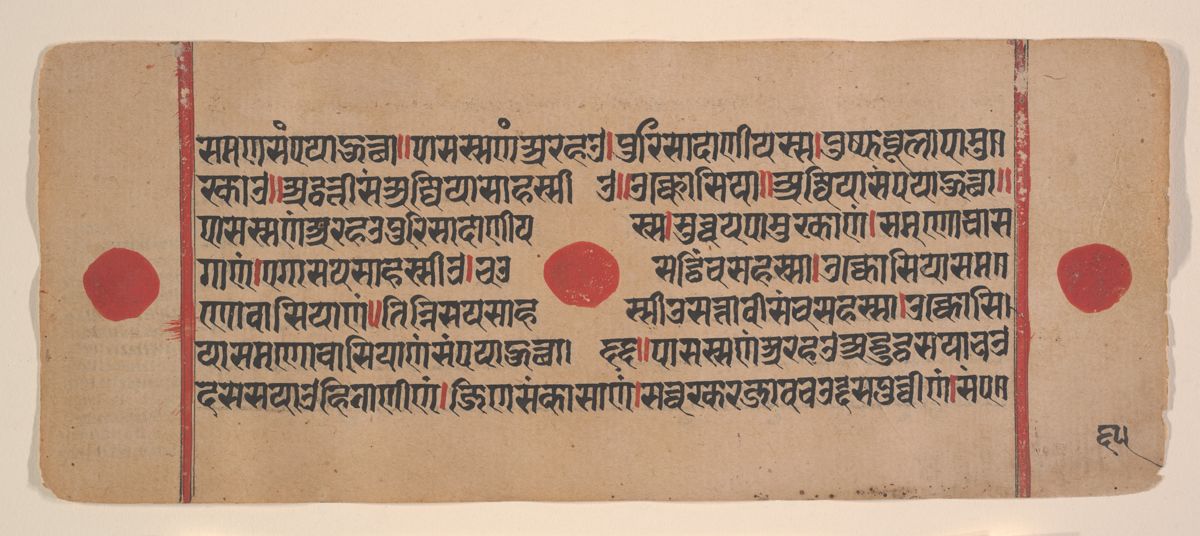 समणसंपयाहुत्था॥पासस्सणंअरहओ।पुरिसादाणीयस्स।पुप्फचूलापामुग
रकाओ॥अट्ठत्तीसंअज्जियासाहस्सी ओ॥उक्कोसिया॥अज्जियासंपयाहुत्था॥
पासस्सणंअरहओपुरिसादाणीय स्स।सुव्वयपामुरकाणं।समणोवास
गाणं।एगासयसाहस्सीओ।चउ सट्ठिंचसहस्सा।उक्कोसियासमण
णोवासियाणं॥तिन्निसयसाह स्सीओसत्तावीसंचसहस्सा।उक्कोसि
यासमणोवासियाणंसंपयाहुत्था। ६६॥पासस्सणंअरहओअद्धुट्ठसयाचउ
दससयाओहिनाणीणं।जिणसंकासाणं।सव्वरकरजावचउद्दसपुव्वीणं।संपण
६५